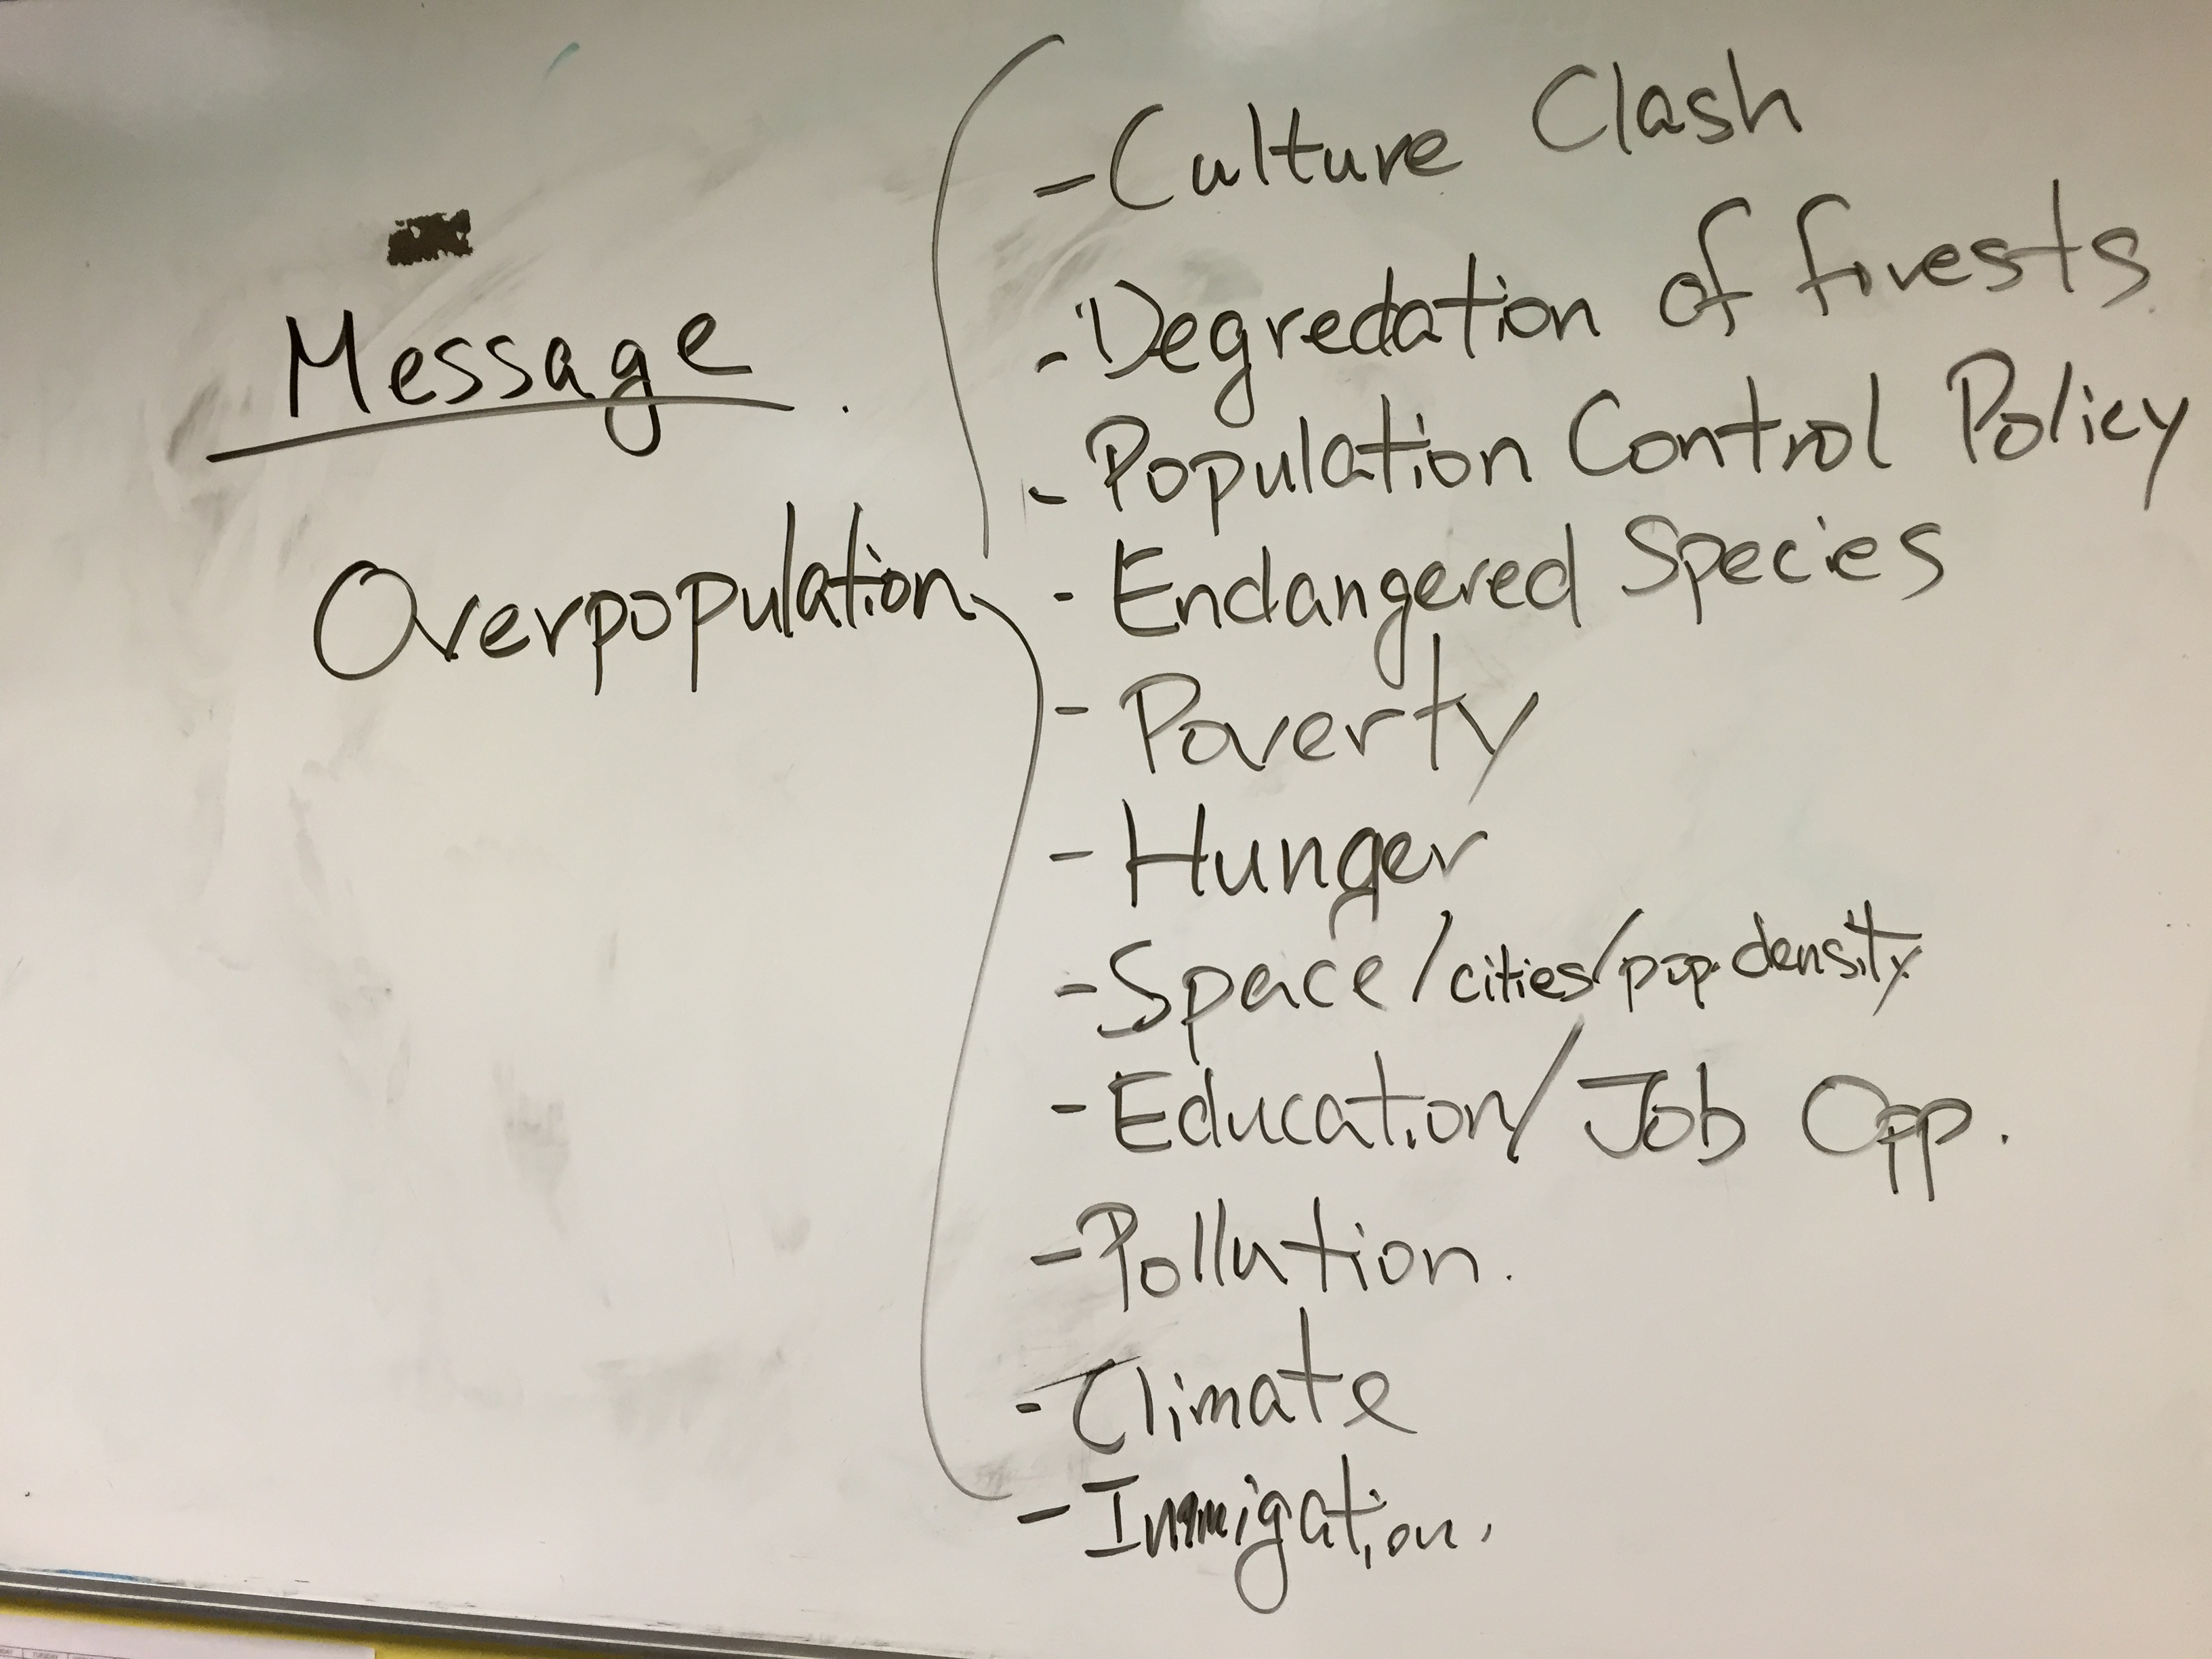 Message.
Overpopulation
- Culture Clash
- Degredation of forests
- Population Control Policy
- Endangered Species
- Poverty
- Hunger
- Space/cities/pop. density
- Education/Job Opp.
- Pollution.
- Climate
- Immigation.